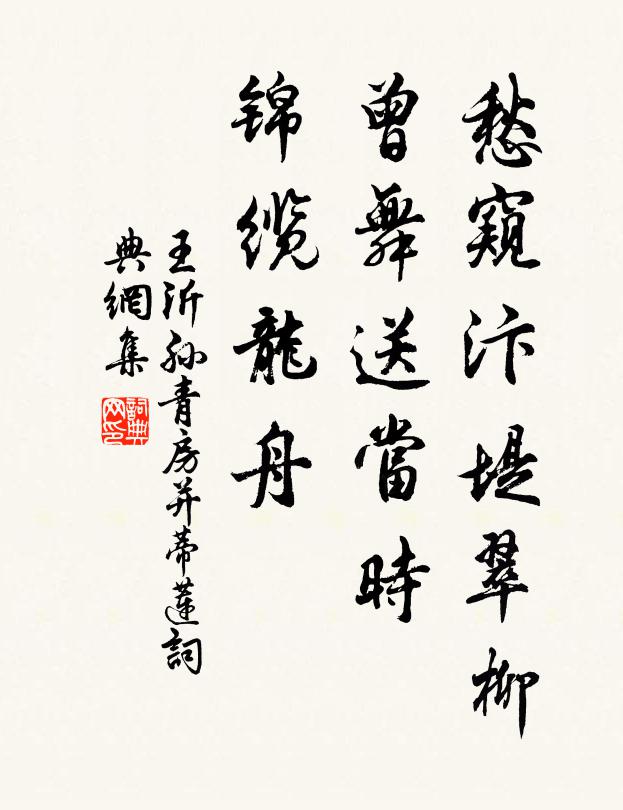 愁窺汴堤翠柳
曾舞送當時
錦纜龍舟
王沂孙青房并蒂蓮詞
典網集
詞典网印